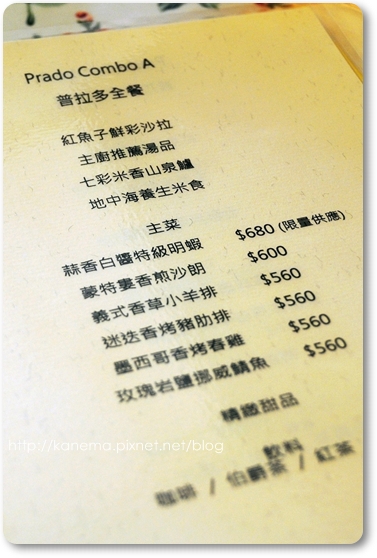 Prado Combo A
普拉多全餐
紅魚子鮮彩沙拉
主廚推薦湯品
七彩米香山泉鱸
地中海養生米食
主菜
蒜香白醬特級明蝦 $680 (限量供應)
蒙特婁香煎沙朗 $600
義式香草小羊排 $560
迷迭香烤豬肋排 $560
墨西哥香烤春雞 $560
玫瑰岩鹽挪威鯖魚 $560
精緻甜品
http://kanema.pixnet.net/blog
飲料
咖啡 / 伯爵茶 / 紅茶